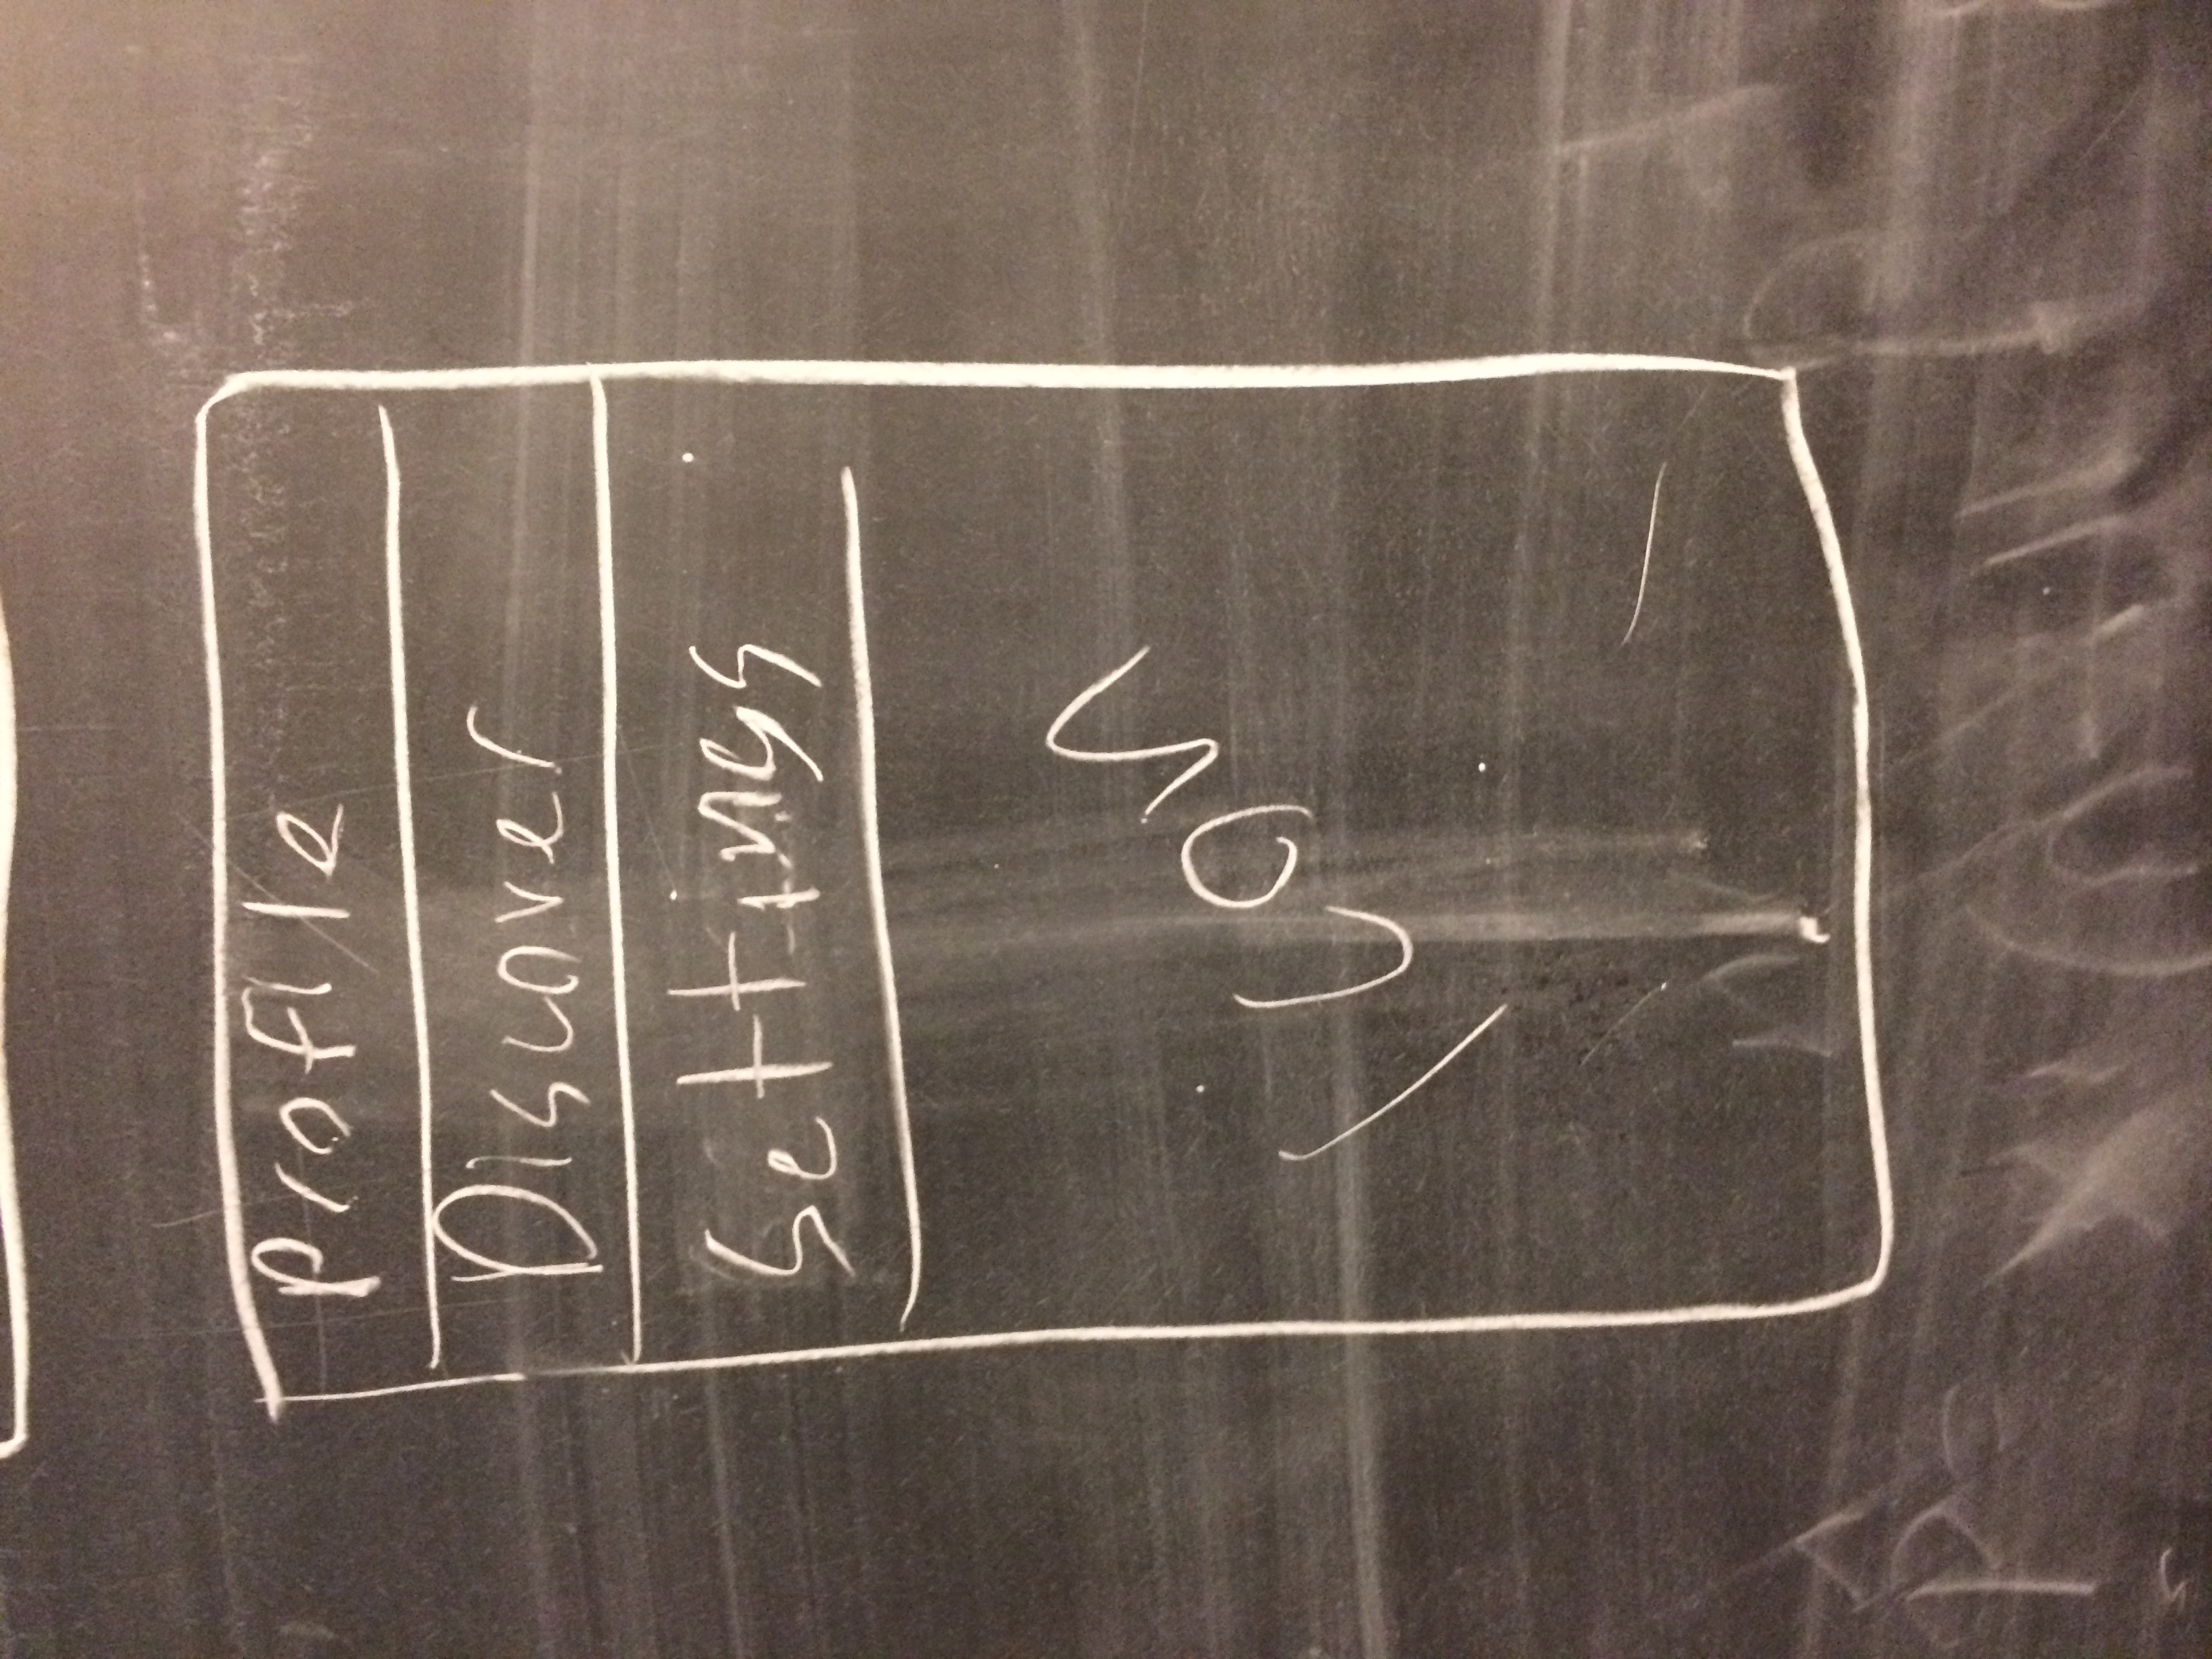 Profile
Discover
Settings
Icon